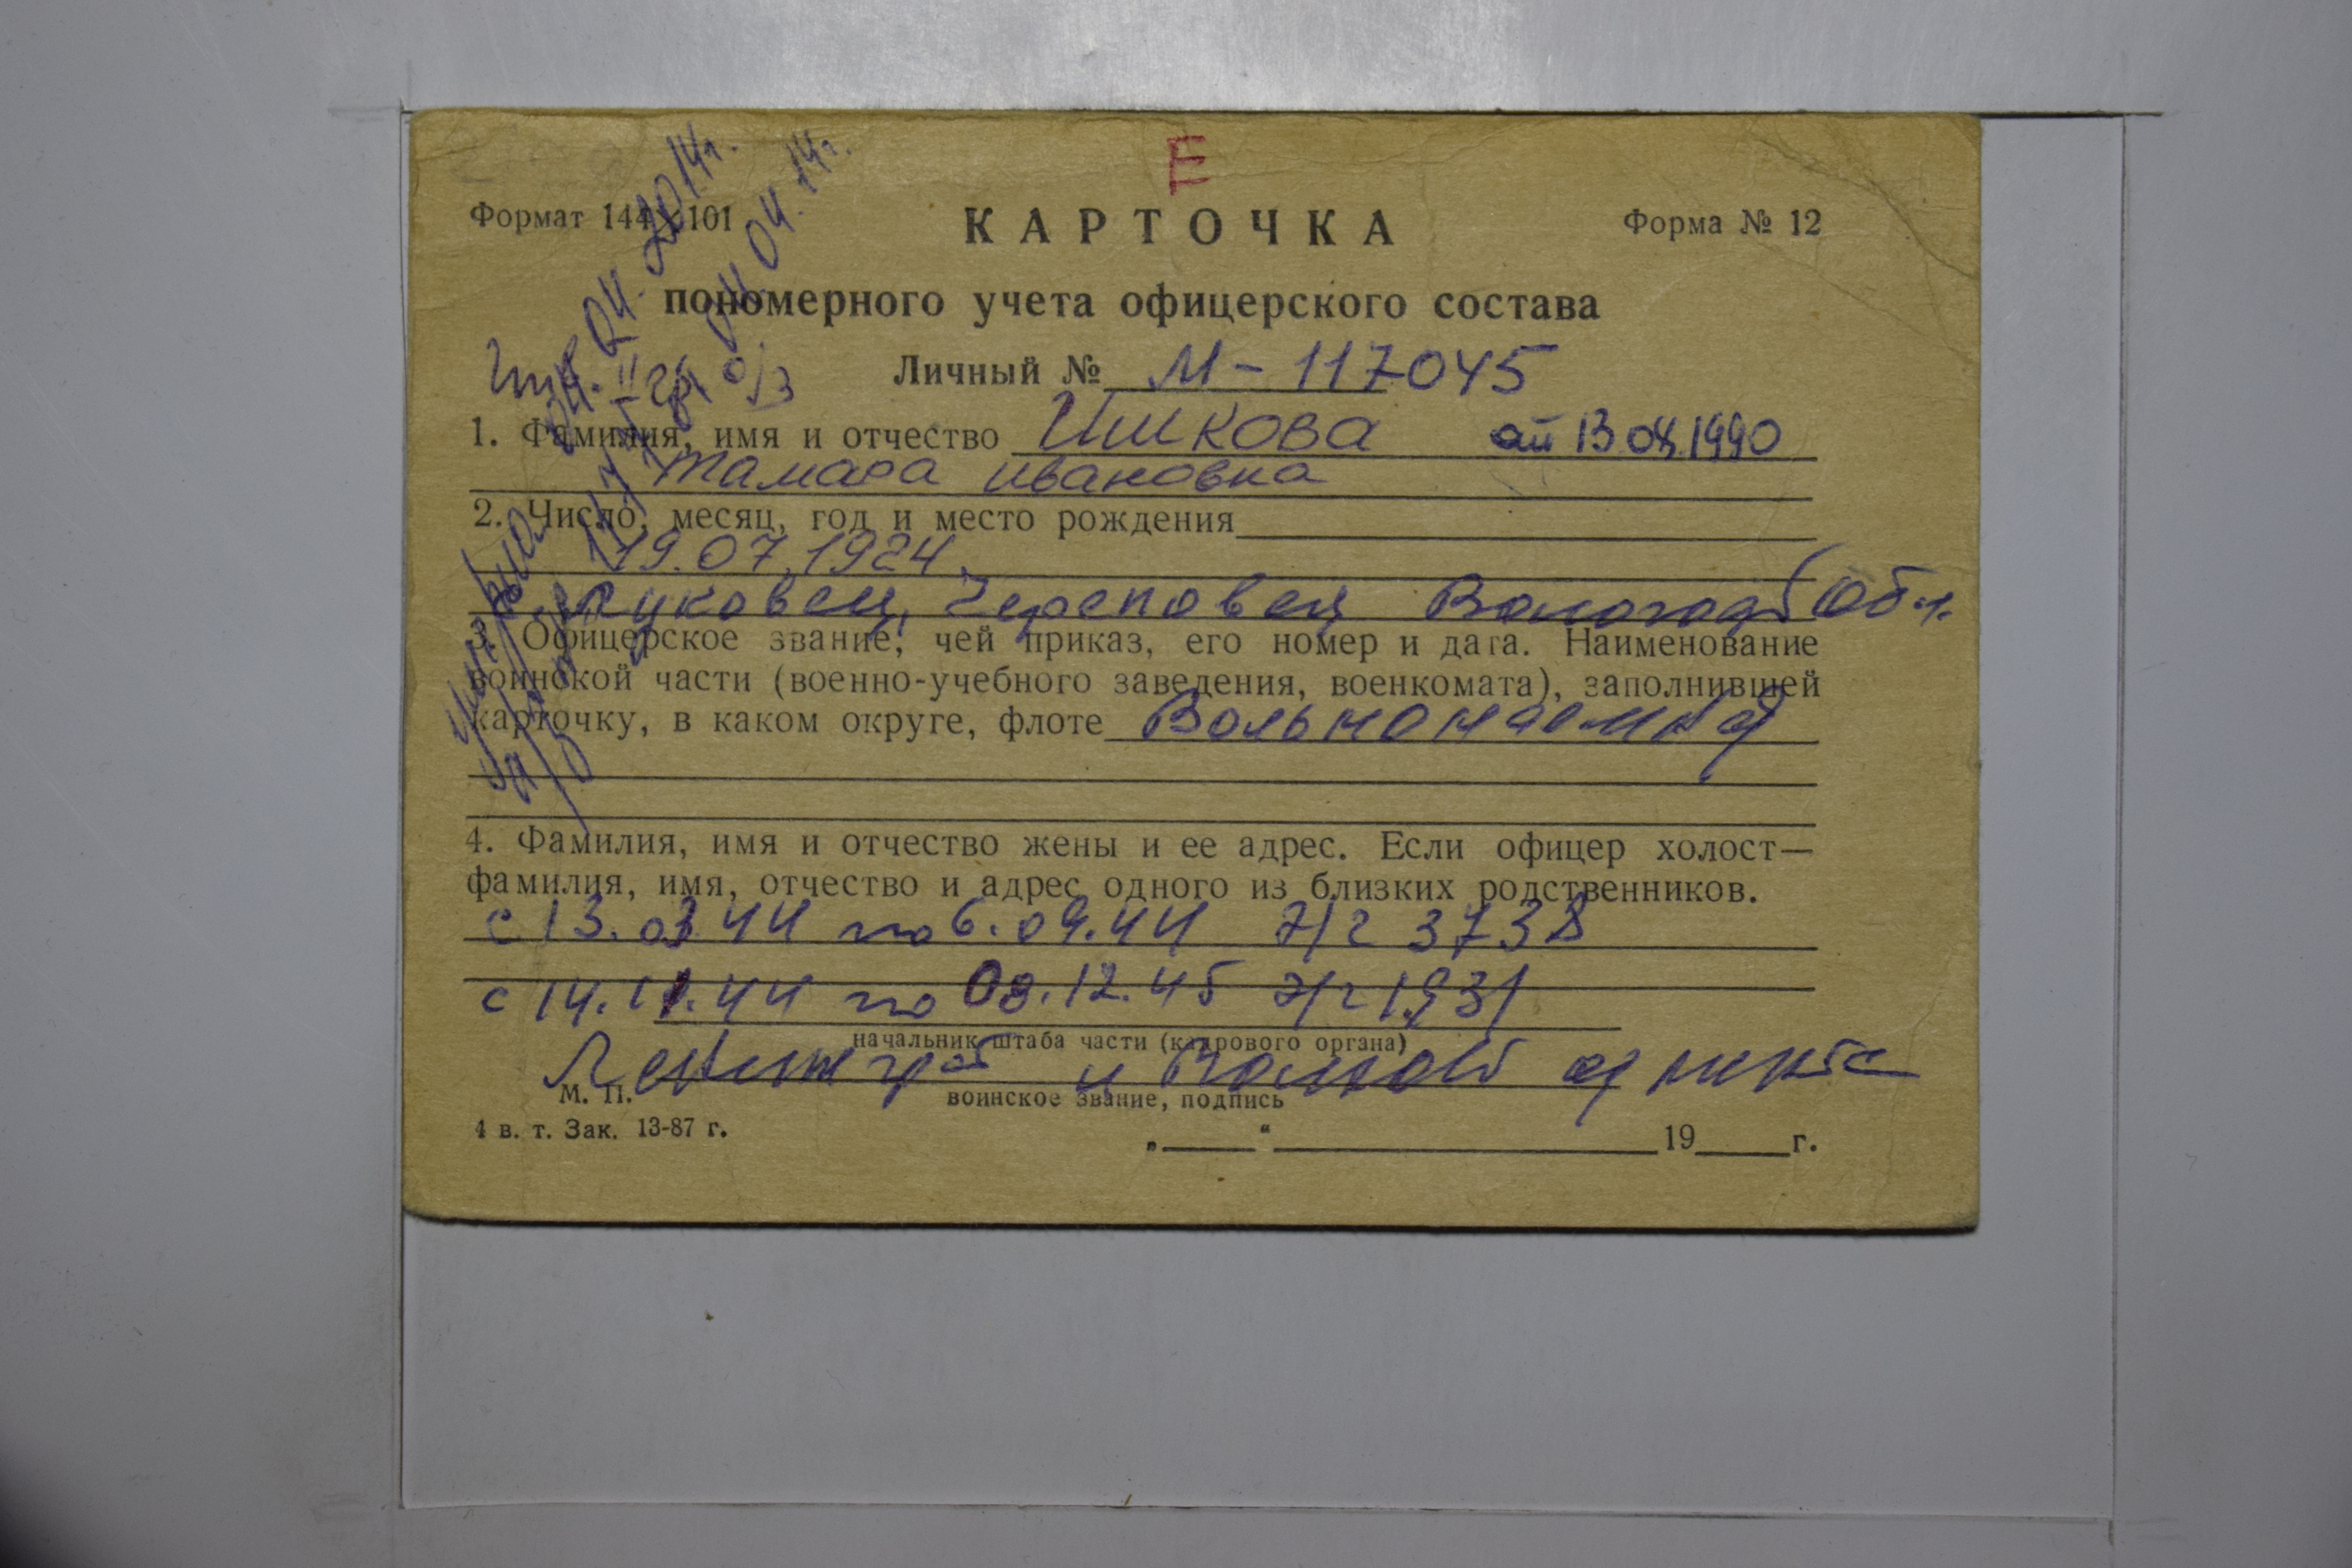 Е
Формат 144×101
КАРТОЧКА
Форма № 12
пономерного учета офицерского состава
Личный № М-117045
1. Фамилия, имя и отчество Ишкова от 13.04.1990
Тамара Ивановна
2. Число, месяц, год и место рождения
19.07.1924.
Череповец Вологод Обл.
3. Офицерское звание, чей приказ, его номер и дата. Наименование
воинской части (военно-учебного заведения, военкомата), заполнившей
карточку, в каком округе, флоте Вольнонаемная
4. Фамилия, имя и отчество жены и ее адрес. Если офицер холост—
фамилия, имя, отчество и адрес одного из близких родственников.
с 13.03.44 по 6.09.44 Э/г 3738
с 14.11.44 по 08.12.45 Э/г 1931
начальник штаба части (кадрового органа)
Ленинград и
М. П.
воинское звание, подпись
4 в. т. Зак. 13-87 г.
„ “ 19 г.